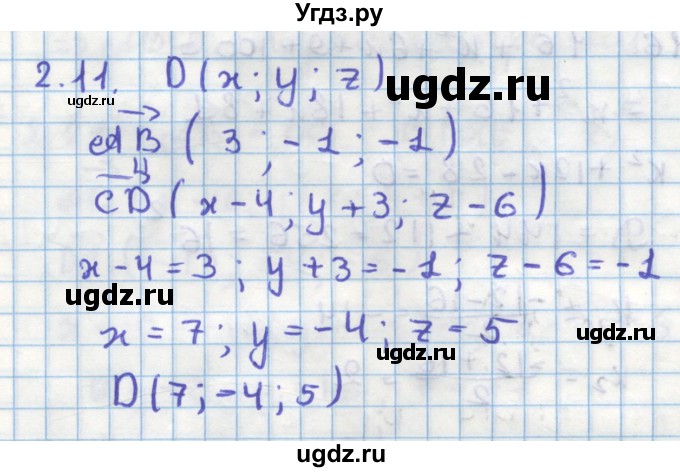 Угдз.ру
2.11. D(x; y; z)
ugdz.ru
ugdz.ru
AB (3; -1; -1)
CD (x-4; y+3; z-6)
x-4=3; y+3=-1; z-6=-1
ugdz.ru
ugdz.ru
x=7; y=-4; z=5
ugdz.ru
D(7; -4; 5)
ugdz.ru